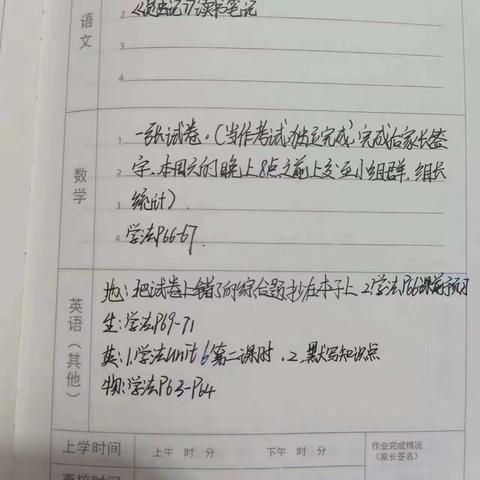 语文
2. 《昆虫记》读书笔记
3.
4.
数学
1. 一张试卷。(当作考试,独立完成,完成后家长签
2. 字,本周六的晚上8点之前上交至小组群,组长
3. 统计)
4. 学法P66-67.
英语(其他)
地:把试卷上错了的综合题抄在本子上 2.学法P66课前预习
生:学法P69-71
英:1.学法unit 6第二课时.2.默写知识点
物:学法P63-P64
上学时间 上午 时 分 下午 时 分 作业完成情况
(家长签名)
离校时间